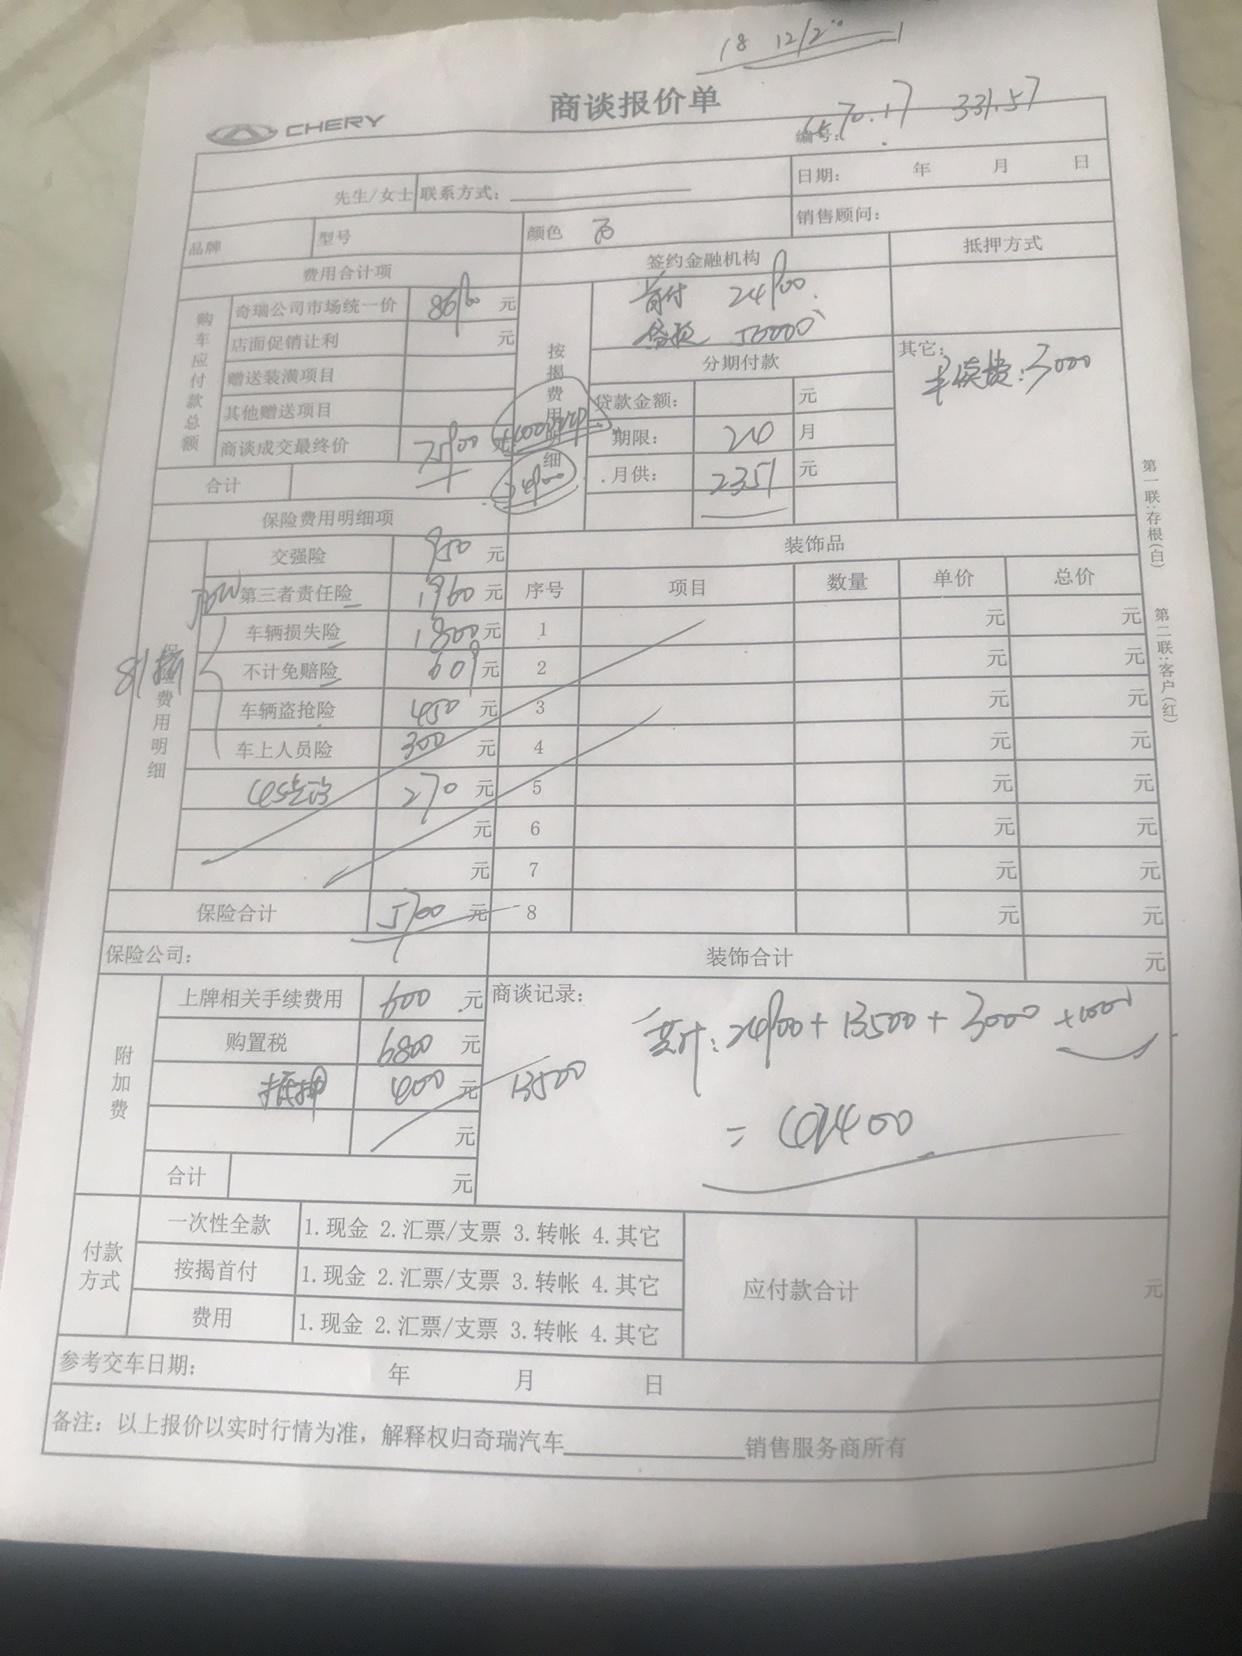 18 12/20
商谈报价单
CHERY
编号: 70.17 331.57
先生/女士 联系方式:
日期: 年 月 日
销售顾问:
品牌 型号 颜色
费用合计项 签约金融机构 抵押方式
购车应付款总额
奇瑞公司市场统一价 元
店面促销让利 元
赠送装潢项目
其他赠送项目
商谈成交最终价
合计
按揭费用明细
首付 24900
贷款 50000
分期付款
贷款金额: 元
期限: 24 月
月供: 2351 元
其它:
手续费:3000
保险费用明细项
保险费用明细
交强险 950 元
第三者责任险 1960 元
车辆损失险 1800 元
不计免赔险 609 元
车辆盗抢险 450 元
车上人员险 300 元
270 元
元
元
保险合计 5700 元
保险公司:
装饰品
序号 项目 数量 单价 总价
1 元 元
2 元 元
3 元 元
4 元 元
5 元 元
6 元 元
7 元 元
8 元 元
装饰合计 元
第一联:存根(白)
第二联:客户(红)
附加费
上牌相关手续费用 600 元
购置税 6800 元
抵押 400 元
元
合计 元
13500
商谈记录:
共计: 24900+13500+3000+1000
= 42400
付款方式
一次性全款 1.现金 2.汇票/支票 3.转帐 4.其它
按揭首付 1.现金 2.汇票/支票 3.转帐 4.其它
费用 1.现金 2.汇票/支票 3.转帐 4.其它
应付款合计 元
参考交车日期: 年 月 日
备注:以上报价以实时行情为准，解释权归奇瑞汽车 销售服务商所有